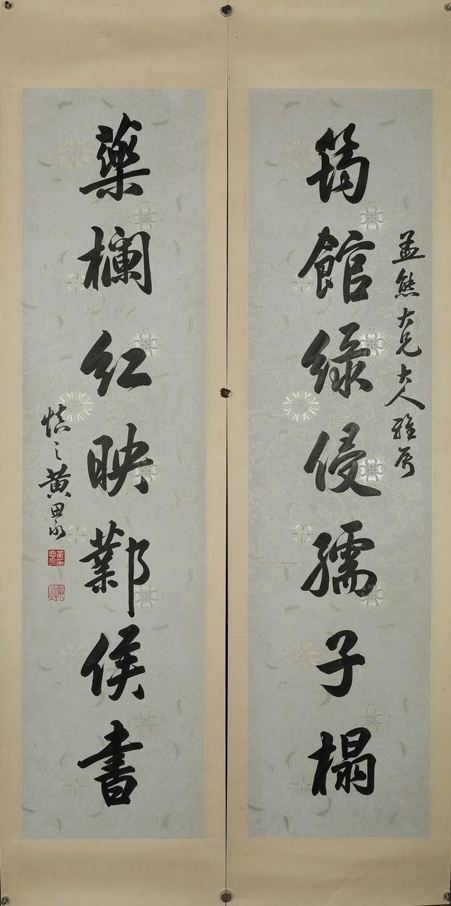 孟熊大兄大人雅屬
筠館綠侵孺子榻
藥欄紅映鄴侯書
慎之黃思永